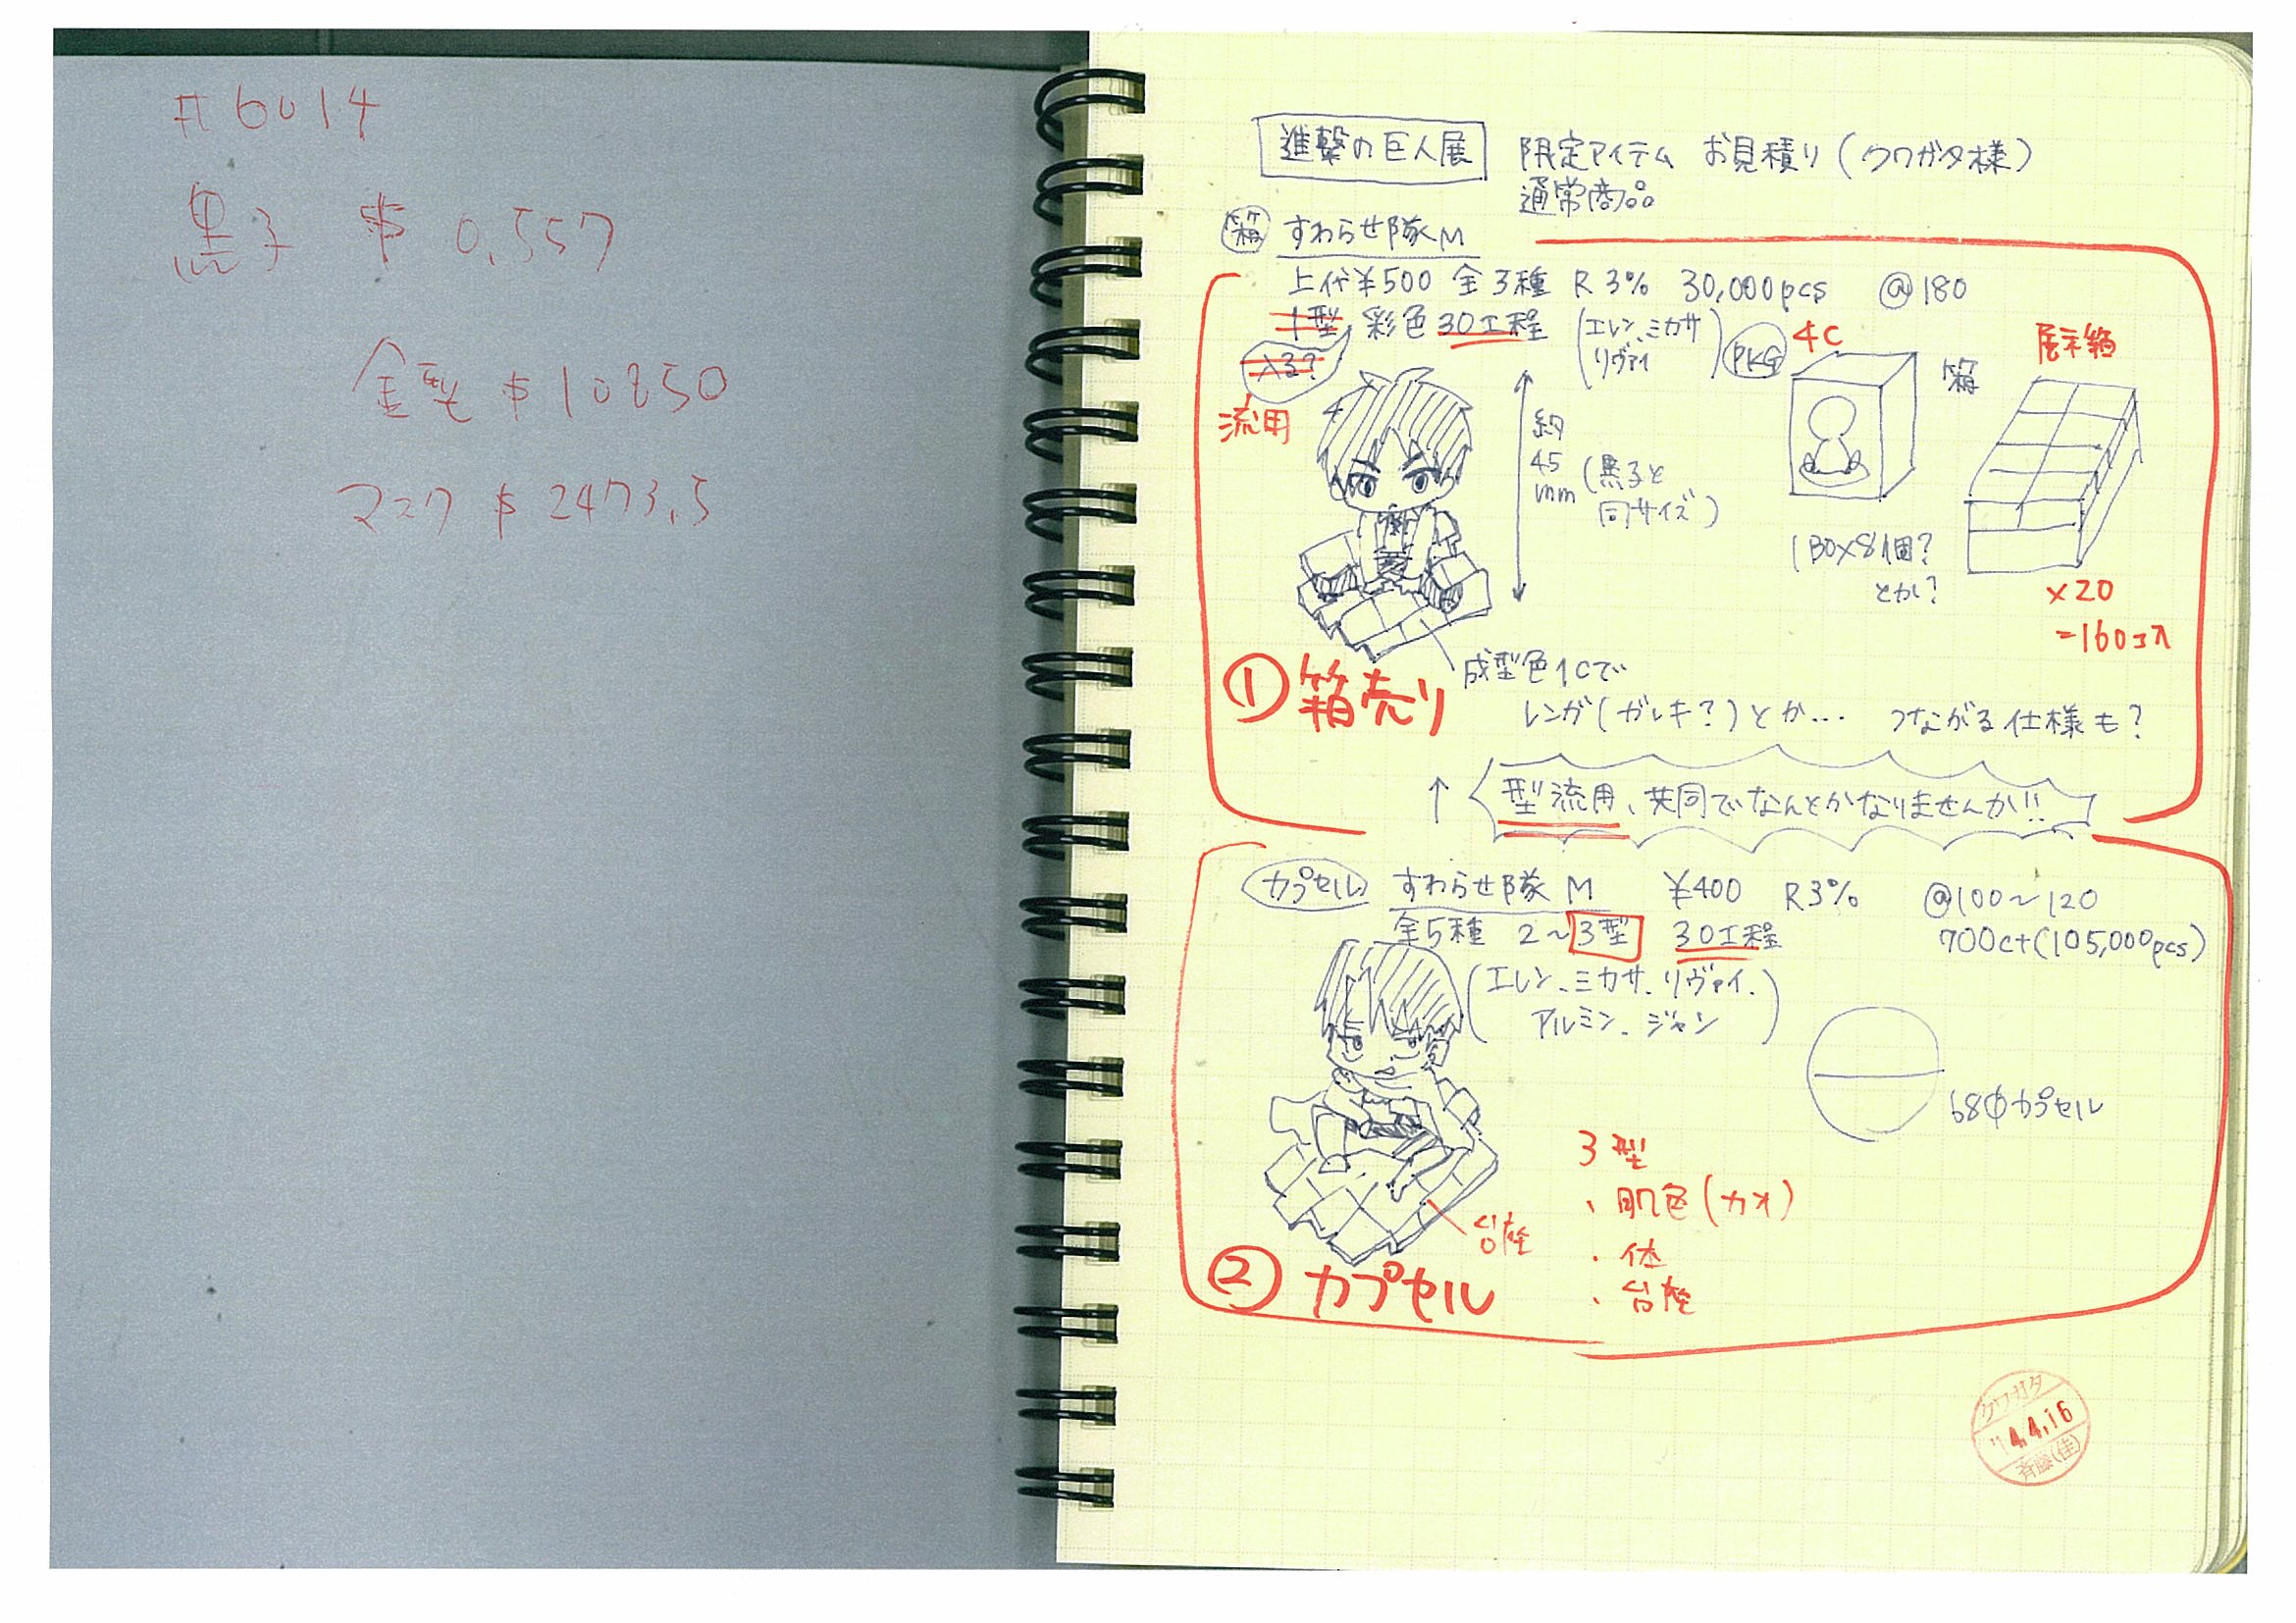 #6014
黒子 $ 0.557
金型 $ 10850
マスク $ 2473.5
進撃の巨人展 限定アイテム お見積り(クワガタ様)
通常商品
箱 すわらせ隊M
上代¥500 全3種 R3% 30,000pcs @180
1型 彩色30工程 (エレン、ミカサ
リヴァイ)
×3?
流用
PKG 4C
箱
展示箱
約
45
mm
(黒子と
同サイズ)
1BOX8個?
とか?
×20
=160コ入
成型色1Cで
レンガ(ガレキ?)とか… つながる仕様も?
① 箱売り
↑ 型流用、共同でなんとかなりませんか!!
カプセル すわらせ隊M ¥400 R3% @100~120
全5種 2~3型 30工程 700ct(105,000pcs)
(エレン、ミカサ、リヴァイ、
アルミン、ジャン)
68Φカプセル
3型
・肌色(カオ)
・体
・台座
台座
② カプセル
クワガタ
'14.4.16
斉藤(佳)